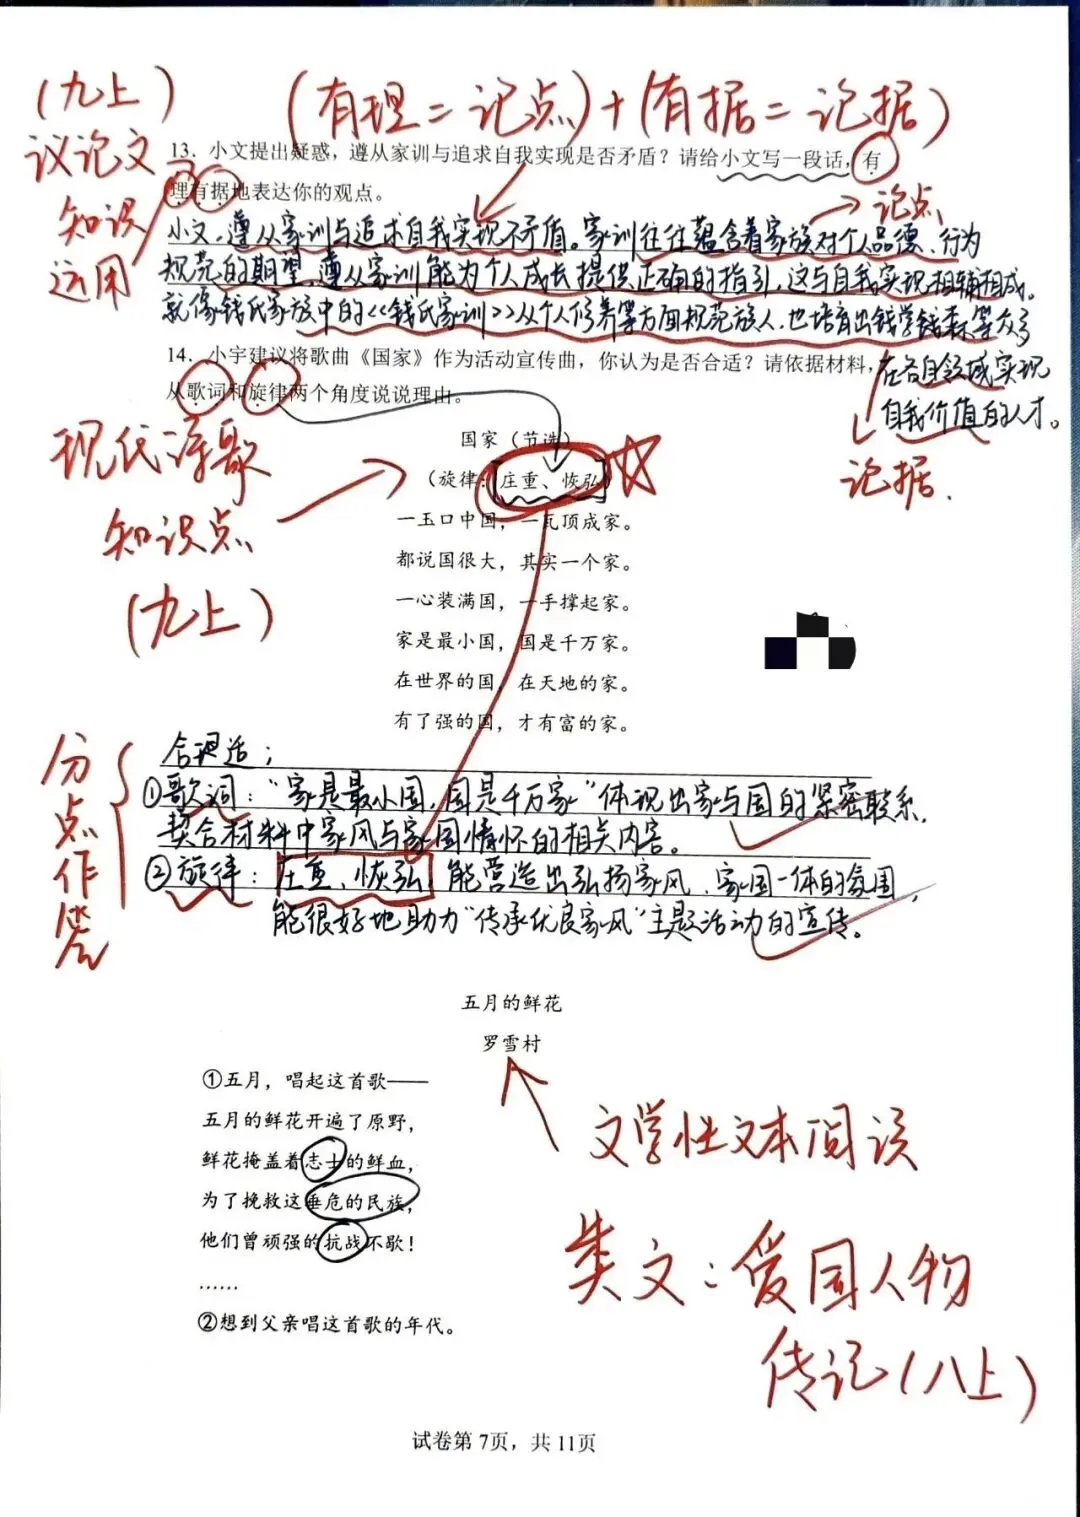 (九上)
(有理=论点)+(有据=论据)
议论文
知识
运用
13. 小文提出疑惑，遵从家训与追求自我实现是否矛盾？请给小文写一段话，有
理有据地表达你的观点。
论点
小文，遵从家训与追求自我实现不矛盾。家训往往蕴含着家族对个人品德、行为
规范的期望，遵从家训能为个人成长提供正确的指引，这与自我实现相辅相成。
就像钱氏家族中的《钱氏家训》从个人修养等方面规范族人，也培育出钱学钱森等众多
在各自领域实现
自我价值的人才。
论据.
14. 小宇建议将歌曲《国家》作为活动宣传曲，你认为是否合适？请依据材料，
从歌词和旋律两个角度说说理由。
现代诗歌
知识点
(九上)
国家（节选）
（旋律：庄重、恢弘）
一玉口中国，一瓦顶成家。
都说国很大，其实一个家。
一心装满国，一手撑起家。
家是最小国，国是千万家。
在世界的国，在天地的家。
有了强的国，才有富的家。
分点作答
合适；
①歌词："家是最小国，国是千万家"体现出家与国的紧密联系，
契合材料中家风与家国情怀的相关内容。
②旋律：庄重、恢弘，能营造出弘扬家风、家国一体的氛围，
能很好地助力"传承优良家风"主题活动的宣传。
五月的鲜花
罗雪村
①五月，唱起这首歌——
五月的鲜花开遍了原野，
鲜花掩盖着志士的鲜血，
为了挽救这垂危的民族，
他们曾顽强的抗战不歇！
……
②想到父亲唱这首歌的年代。
文学性文本阅读
类文：爱国人物
传记(八上)
试卷第 7页，共 11页